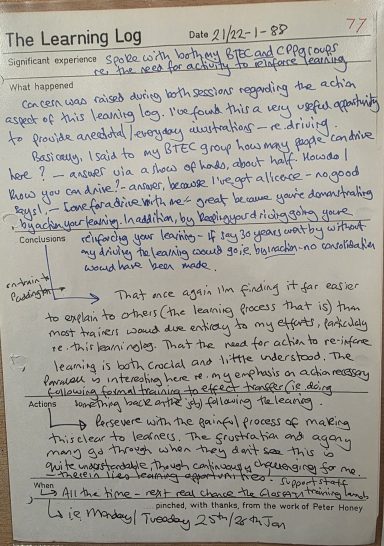 77
The Learning Log Date 21/22-1-88
Significant experience Spoke with both my BTEC and CPP groups
re. the need for activity to reinforce learning
What happened
Concern was raised during both sessions regarding the action
aspect of this learning log. I've found this a very useful opportunity
to provide anecdotal/everyday illustrations - re. driving.
Basically, I said to my BTEC group how many people can drive
here? - answer via a show of hands, about half. How do I
know you can drive? - answer, because I've got a licence - no good
says I. - Come for a drive with me - great because you're demonstrating
by action your learning. In addition, by keeping your driving going you're
reinforcing your learning - if say 30 years went by without
my driving the learning would go i.e. by inaction - no consolidation
would have been made.
Conclusions
on train to
Paddington
That once again I'm finding it far easier
to explain to others (the learning process that is) than
most trainers would due entirely to my efforts, particularly
re. this learning log. That the need for action to re-inforce
learning is both crucial and little understood. The
parallel is interesting here re. my emphasis on action necessary
following formal training to effect transfer (ie doing
something back at the job) following the learning.
Actions
Persevere with the painful process of making
this clear to learners. The frustration and agony
many go through when they don't see this is
quite understandable, though continuously challenging for me.
- therein lies learning opportunities.
When
All the time - next real chance the Glossary support staff training
pinched, with thanks, from the work of Peter Honey
i.e. Monday/Tuesday 25th/26th Jan